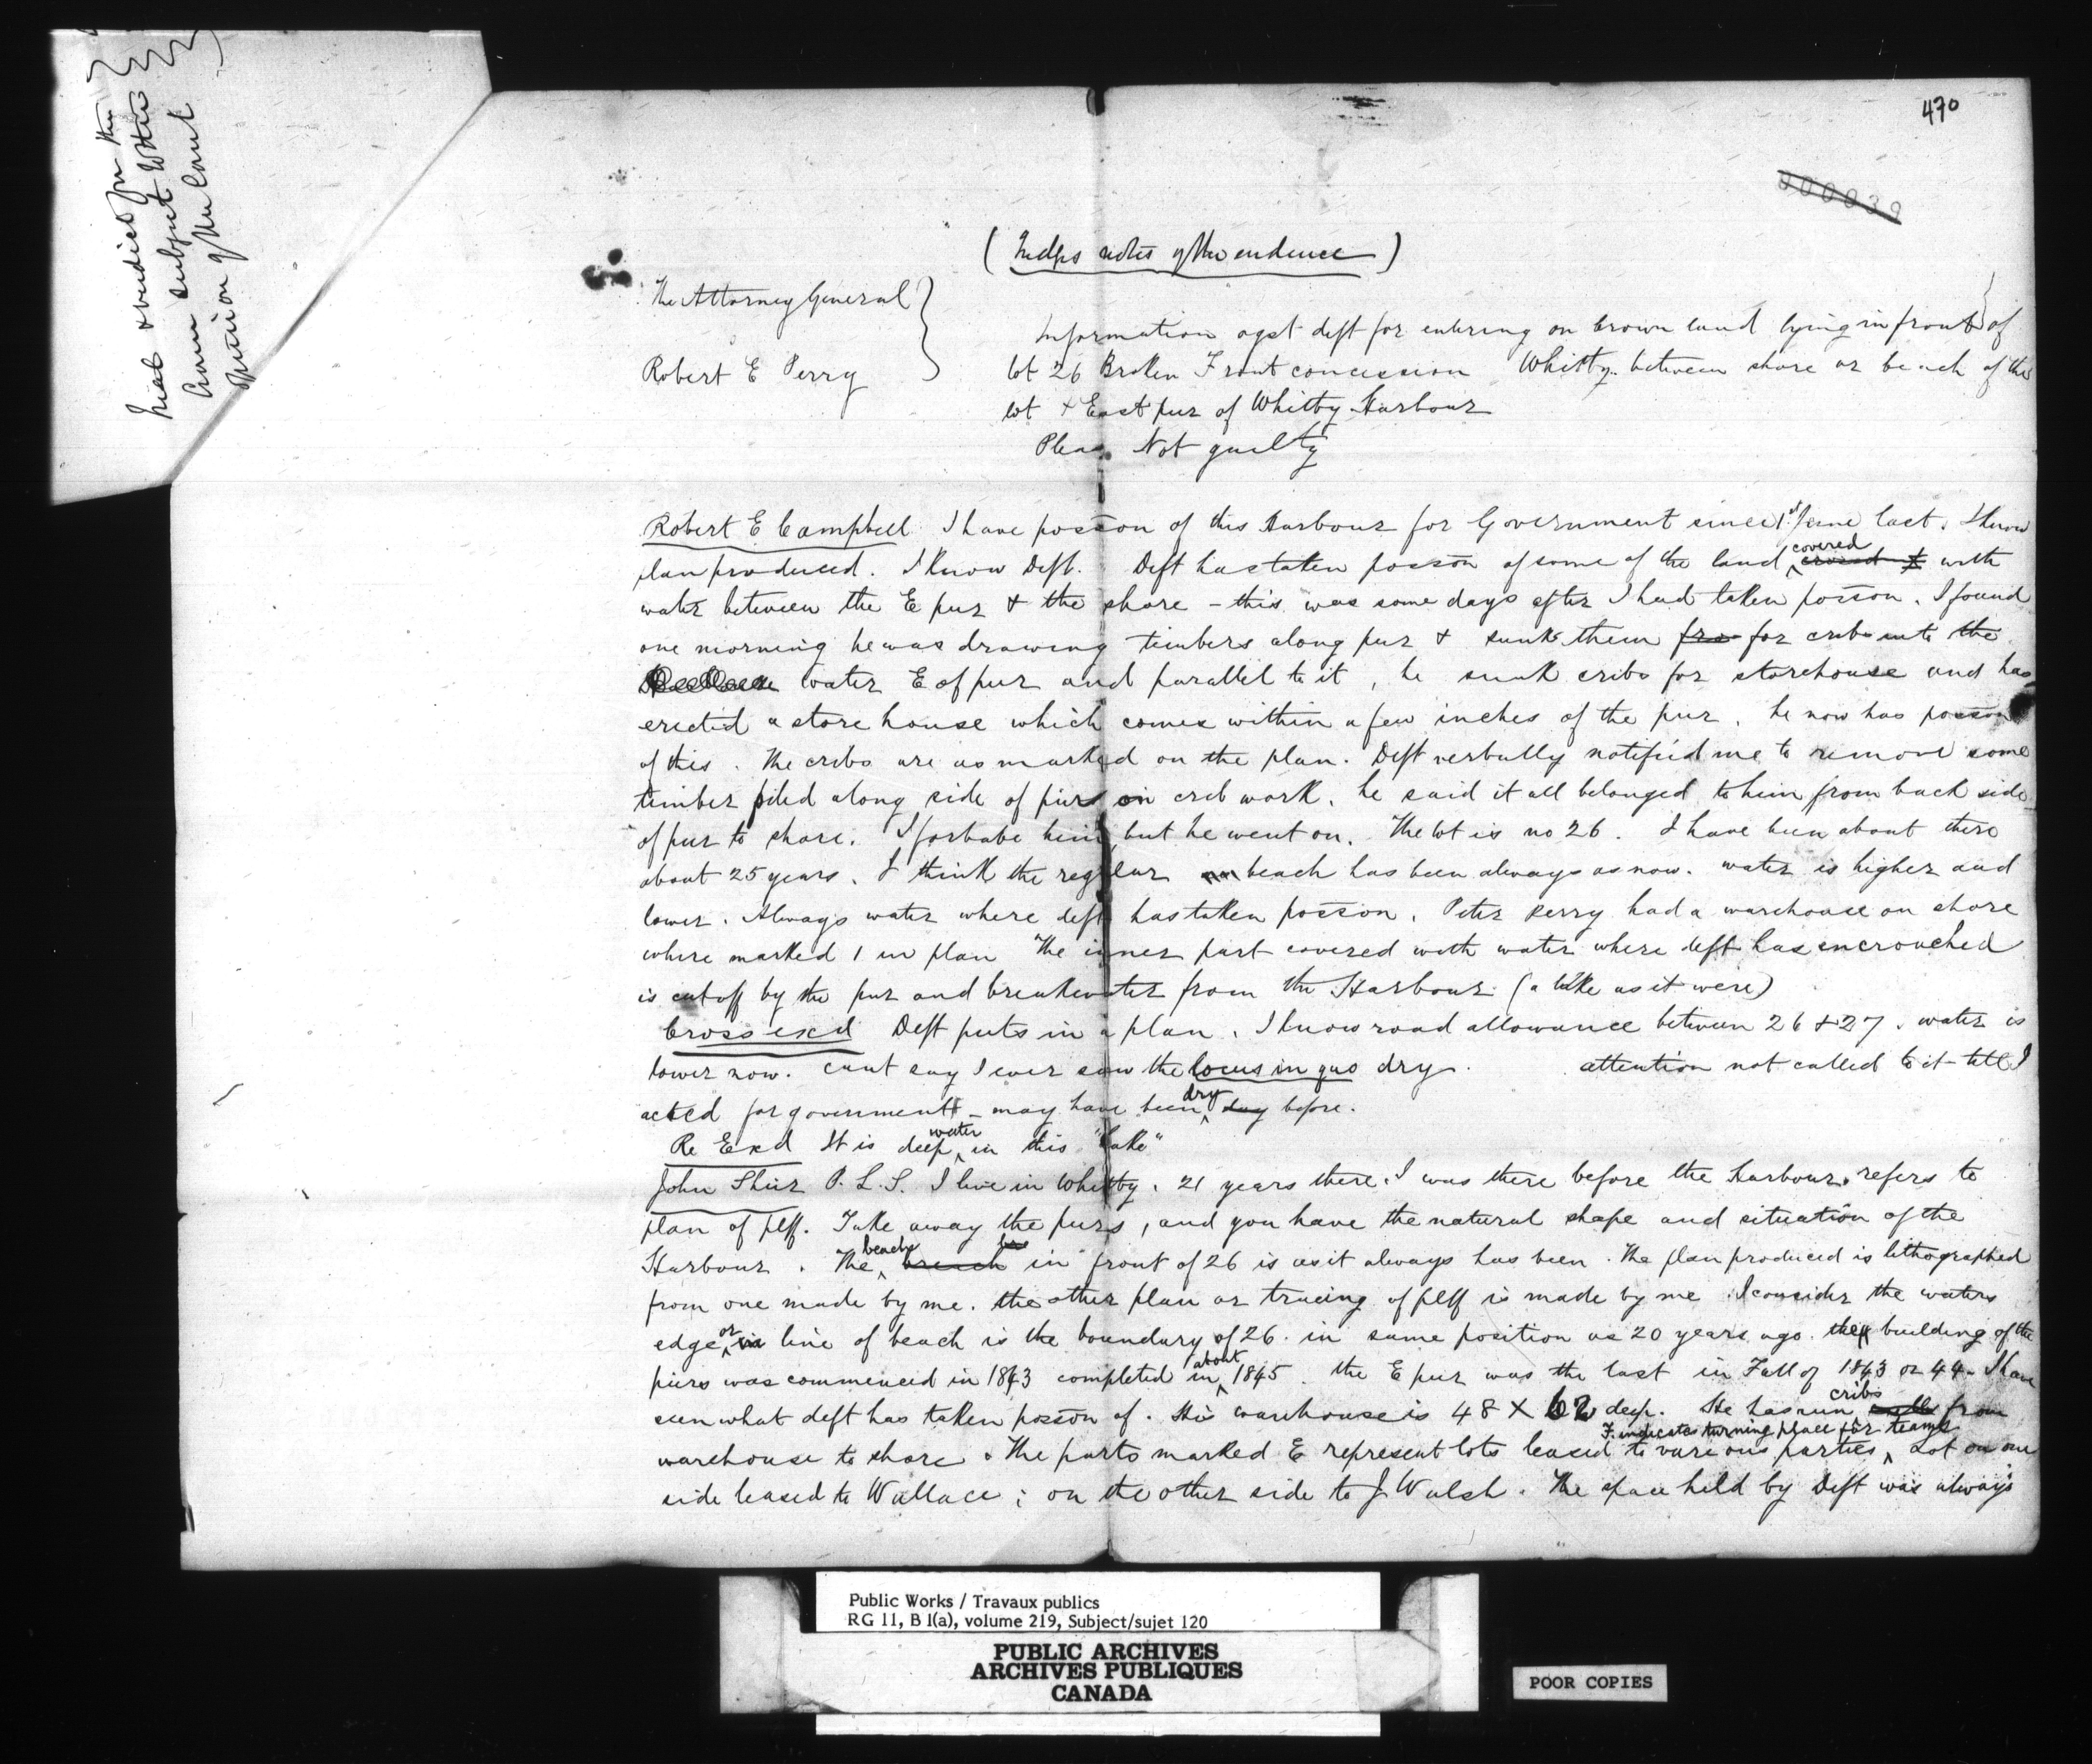 470
000039
& verdict for the
Crown subject to the
opinion of the Court
(Judges notes of the evidence)
The Attorney General
Robert E Perry
Information agst deft for entering on Crown land lying in front of
lot 26 Broken Front concession Whitby between shore or beach of the
lot & East pier of Whitby Harbour
Plea Not guilty
Robert E Campbell I have posson of this Harbour for Government since 1st June last. I know
plan produced. I know Deft. Deft has taken posson of some of the land covered with
water between the E pier & the shore - this was some days after I had taken posson. I found
one morning he was drawing timbers along pier & sunk them fro for cribs into the
water E of pier and parallel to it, he sunk cribs for storehouse and has
erected a store house which comes within a few inches of the pier. he now has posson
of this. The cribs are as marked on the plan. Deft verbally notified me to remove some
timber piled along side of piers on crib work. he said it all belonged to him from back side
of pier to shore. I forbabe him, but he went on. The lot is no 26. I have been about there
about 25 years. I think the regular beach has been always as now. water is higher and
lower. Always water where deft has taken posson. Peter Perry had a warehouse on shore
where marked 1 in plan The inner part covered with water where deft has encroached
is cut off by the pier and breakwater from the Harbour (a lake as it were)
Cross exd Deft puts in a plan. I know road allowance between 26 & 27. water is
lower now. cant say I ever saw the locus in quo dry. attention not called to it till I
acted for government - may have been dry day before.
Re Exd It is deep water in this "lake"
John Shier P.L.S. I live in Whitby. 21 years there. I was there before the Harbour. refers to
plan of plff. Take away the piers, and you have the natural shape and situation of the
Harbour. The beach breach in front of 26 is as it always has been. The plan produced is lithographed
from one made by me. the other plan or tracing of plff is made by me I consider the waters
edge or line of beach is the boundary of 26. in same position as 20 years ago. the building of the
piers was commenced in 1843 completed in about 1845. the E pier was the last in Fall of 1843 or 44. I have
seen what deft has taken posson of. His warehouse is 48 X 62 deep. He has run cribs from
warehouse to shore. The parts marked E represent lots leased to various parties F. indicates turning place for teams Lot on one
side leased to Wallace; on the other side to J Walsh. The space held by Deft was always
Public Works / Travaux publics
RG 11, B 1(a), volume 219, Subject/sujet 120
PUBLIC ARCHIVES
ARCHIVES PUBLIQUES
CANADA
POOR COPIES